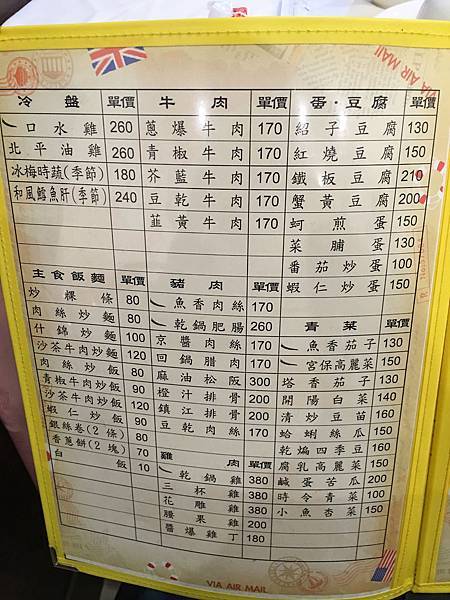 冷盤 單價
口水雞 260
北平油雞 260
冰梅時蔬(季節) 180
和風鱈魚肝(季節) 240
主食飯麵 單價
炒粿條 80
肉絲炒麵 80
什錦炒麵 100
沙茶牛肉炒麵 120
肉絲炒飯 80
青椒牛肉炒飯 90
沙茶牛肉炒飯 120
蝦仁炒飯 90
銀絲卷(2條) 80
香蔥餅(2塊) 70
白飯 10
牛肉 單價
蔥爆牛肉 170
青椒牛肉 170
芥藍牛肉 170
豆乾牛肉 170
韮黃牛肉 170
豬肉
魚香肉絲 170
乾鍋肥腸 260
京醬肉絲 170
回鍋腊肉 170
麻油松阪 300
橙汁排骨 200
鎮江排骨 200
豆乾肉絲 170
雞肉
乾鍋雞 380
三杯雞 380
花雕雞 380
腰果雞 200
醬爆雞丁 180
蛋·豆腐 單價
紹子豆腐 130
紅燒豆腐 150
鐵板豆腐 210
蟹黃豆腐 200
蚵煎蛋 150
菜脯蛋 130
番茄炒蛋 100
蝦仁炒蛋 150
青菜 單價
魚香茄子 130
宮保高麗菜 150
塔香茄子 130
開陽白菜 140
清炒豆苗 160
蛤蜊絲瓜 150
乾煸四季豆 160
腐乳高麗菜 150
鹹蛋苦瓜 200
時令青菜 100
小魚杏菜 150
VIA AIR MAIL
VIA AIR MAIL